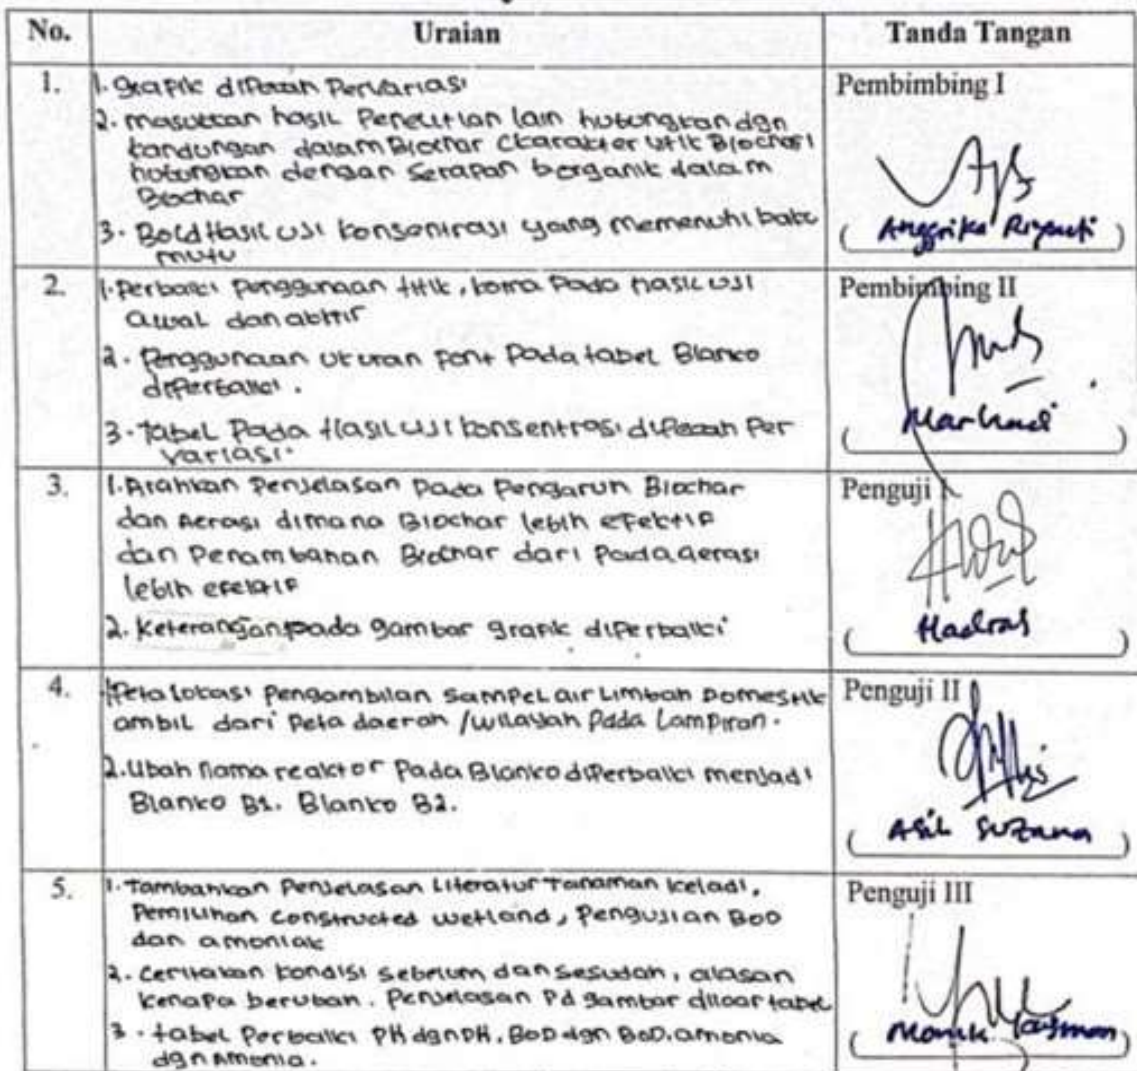 No. Uraian Tanda Tangan
1. 1. grafik dipecah Pervariasi
2. masukkan hasil Penelitian lain hubungkan dgn
kandungan dalam Biochar (karakteristik Biochar)
hubungkan dengan Serapan organik dalam
Biochar
3. Bold Hasil uji konsentrasi yang memenuhi baku
mutu
Pembimbing I
( Anggrika Riyanti )
2. 1. Perbaiki Penggunaan titik, koma Pada Hasil uji
awal dan akhir
2. Penggunaan ukuran font Pada tabel Blanko
diperbaiki.
3. Tabel Pada Hasil uji konsentrasi dipecah Per
variasi.
Pembimbing II
( Marhadi )
3. 1. Arahkan Penjelasan Pada Pengaruh Biochar
dan Aerasi dimana Biochar lebih efektif
dan Penambahan Biochar dari Pada aerasi
lebih efektif
2. Keterangan pada gambar grafik diperbaiki
Penguji I
( Hadrah )
4. 1. Peta lokasi Pengambilan Sampel air Limbah Domestik
ambil dari Peta daerah /wilayah Pada Lampiran.
2. Ubah nama reaktor Pada Blanko diperbaiki menjadi
Blanko B1. Blanko B2.
Penguji II
( Asih Suzana )
5. 1. Tambahkan Penjelasan Literatur Tanaman keladi,
Pemilihan Constructed wetland, Pengujian BOD
dan amoniak
2. Ceritakan kondisi sebelum dan sesudah, alasan
kenapa berubah. Penjelasan Pd gambar diluar tabel
3. tabel Perbaiki PH dgn PH. BOD dgn BOD. amonia
dgn Amonia.
Penguji III
( Monik Kasman )